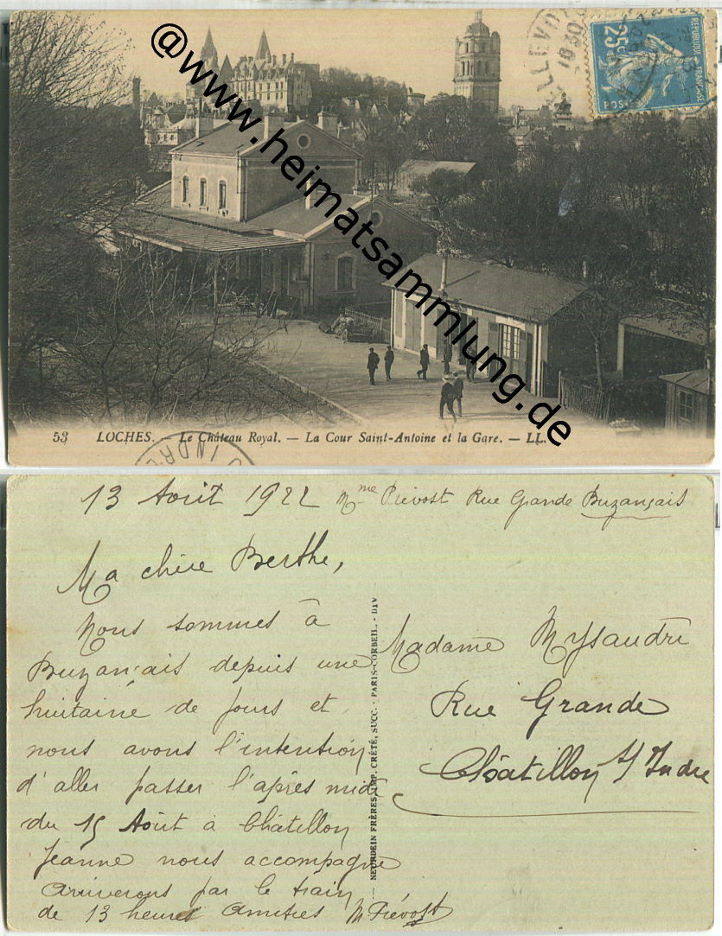 @www.heimatsammlung.de
25c
POSTES
REPUBLIQUE FRANÇAISE
INDRE
53 LOCHES. — Le Château Royal. — La Cour Saint-Antoine et la Gare. — LL.
13 Août 1922 Mme Prévost Rue Grande Buzançais
Ma chère Berthe,
Nous sommes à
Buzançais depuis une
huitaine de jours et
nous avons l'intention
d'aller passer l'après midi
du 15 Août à Châtillon
Jeanne nous accompagne
arriverons par le train
de 13 heures Amitiés M Prévost
NEURDEIN FRÈRES IMP. CRÉTÉ, SUCC. - PARIS-CORBEIL. - DIV
Madame Mysaudre
Rue Grande
Châtillon s/ Indre